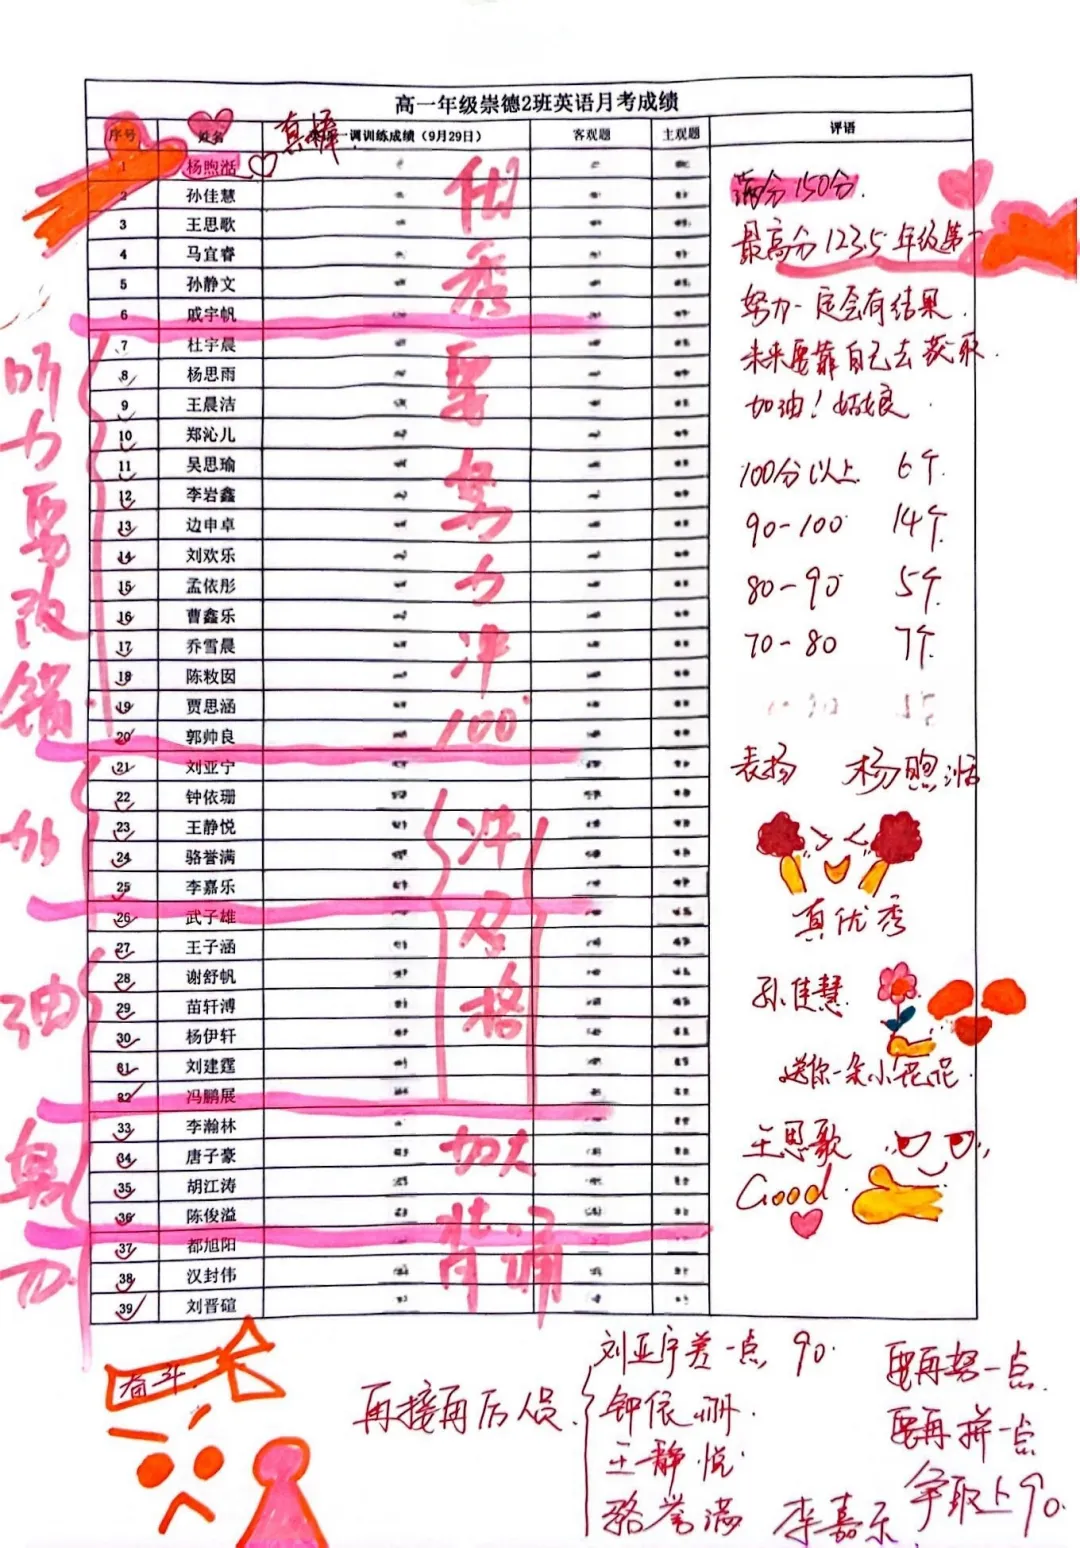 高一年级崇德2班英语月考成绩
序号 姓名 一调训练成绩（9月29日） 客观题 主观题 评语
真棒
1 杨煦湉
2 孙佳慧
3 王思歌
4 马宜睿
5 孙静文
6 戚宇帆
7 杜宇晨
8 杨思雨
9 王晨洁
10 郑沁儿
11 吴思瑜
12 李岩鑫
13 边申卓
14 刘欢乐
15 孟依彤
16 曹鑫乐
17 乔雪晨
18 陈敉囡
19 贾思涵
20 郭帅良
21 刘亚宁
22 钟依珊
23 王静悦
24 骆誉满
25 李嘉乐
26 武子雄
27 王子涵
28 谢舒帆
29 苗轩溥
30 杨伊轩
31 刘建霆
32 冯鹏展
33 李瀚林
34 唐子豪
35 胡江涛
36 陈俊溢
37 都旭阳
38 汉封伟
39 刘晋碹
优秀
要努力冲100
冲及格
加大背诵
听力要改错
加油
努力
满分150分.
最高分123.5年级第一
努力一定会有结果.
未来要靠自己去获取.
加油！姑娘.
100分以上 6个.
90-100 14个.
80-90 5个.
70-80 7个.
表扬 杨煦湉
真优秀
孙佳慧.
送你一朵小花花.
王思歌
Good.
奋斗.
再接再厉人员.
刘亚宁差一点90.
钟依珊.
王静悦.
骆誉满 李嘉乐
要再努一点.
要再拼一点
争取上90.